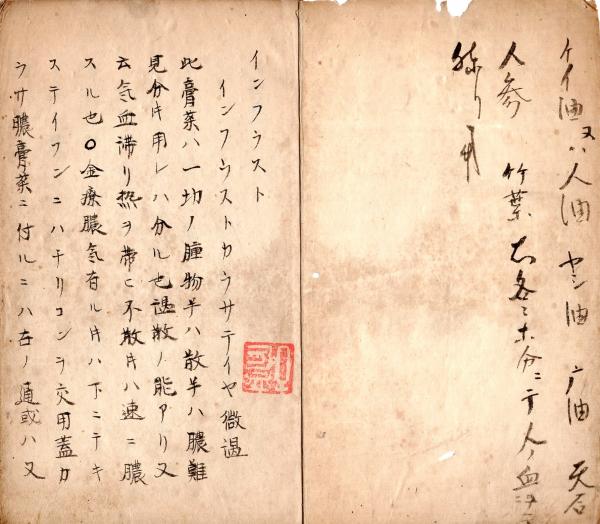 ケイ油又ハ人油 ヤシ油 广油
人参 竹葉 右各〻ホ分ニテ人ノ血ヲ
練リ用
インフウスト
インフウストカウサテイヤ微温
此膏薬ハ一切ノ腫物半ハ散半ハ膿難
見分片用レハ分ル也温散ノ能アリ又
云気血滞リ熱ヲ帯ヒ不散片ハ速ニ膿
スル也〇金療膿気有ル片ハ下ニテキ
ステイフンニハチリコンラ交用蓋カ
ラサ膿膏薬ニ付ルニハ右ノ通或ハ又